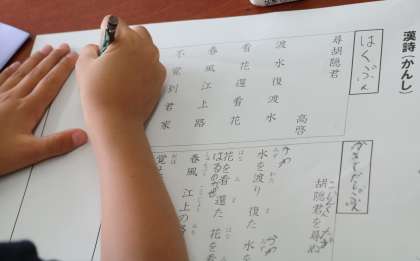 漢詩(かんし)
はくぶん
尋胡隠君 高啓
渡水復渡水
看花還看花
春風江上路
不覚到君家
かきくだし文
胡隠君を尋ぬ
水を渡り 復た 水
花を看 還た 花を看
春風 江上の
覚